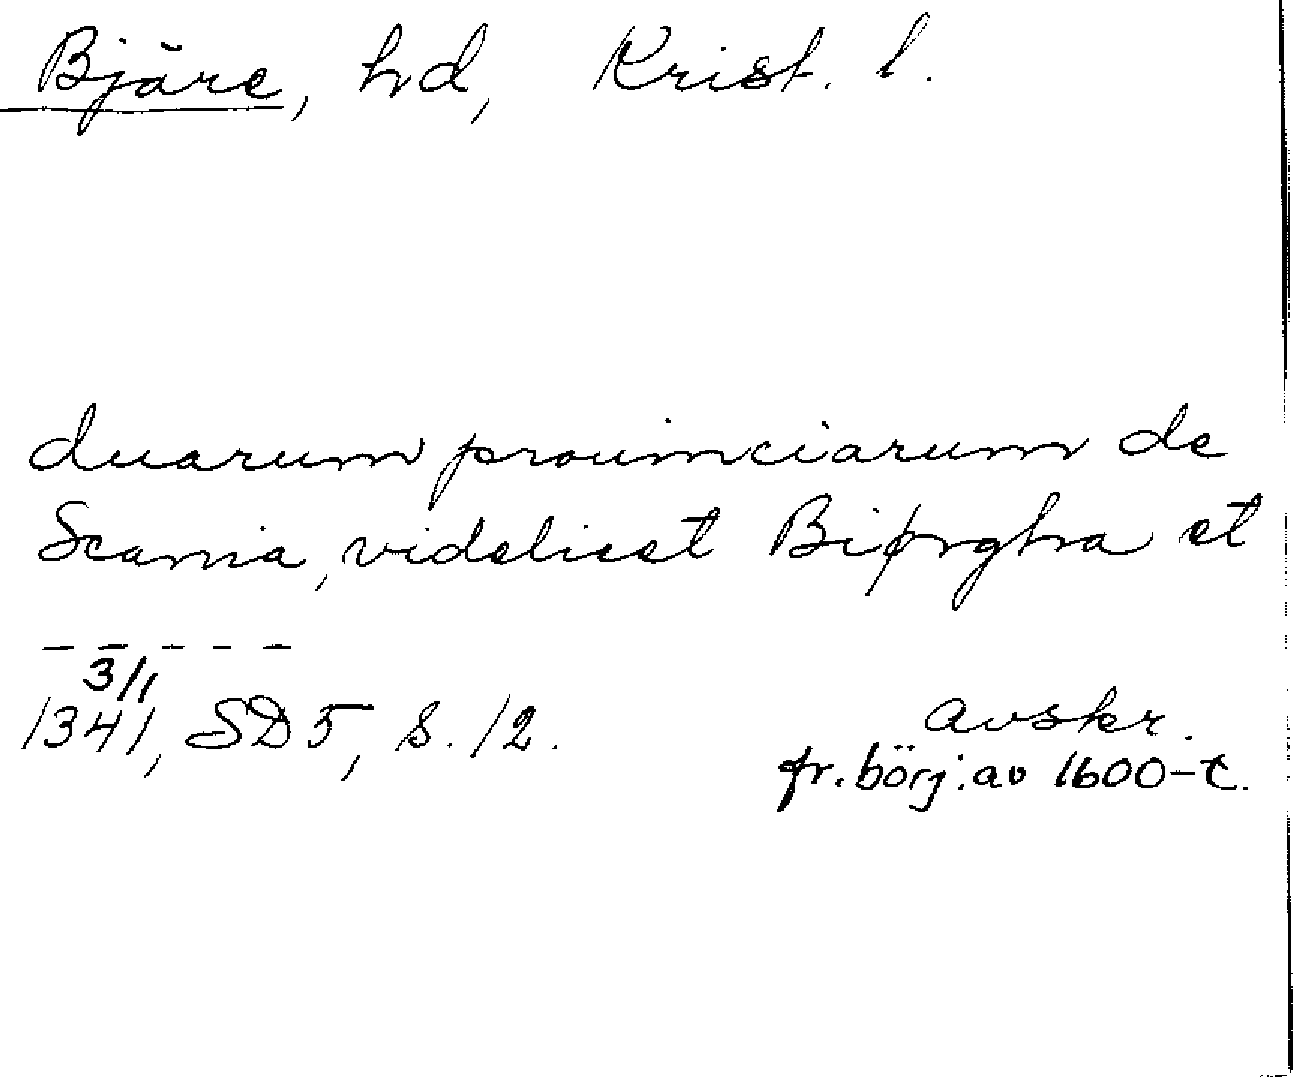 Bjäre, hd, Krist. l.
duarum prouinciarum de
Scania, videlicet Biørghra et
— — — — —
3/1
1341, SD 5, s. 12. avskr.
fr. börj. av 1600-t.